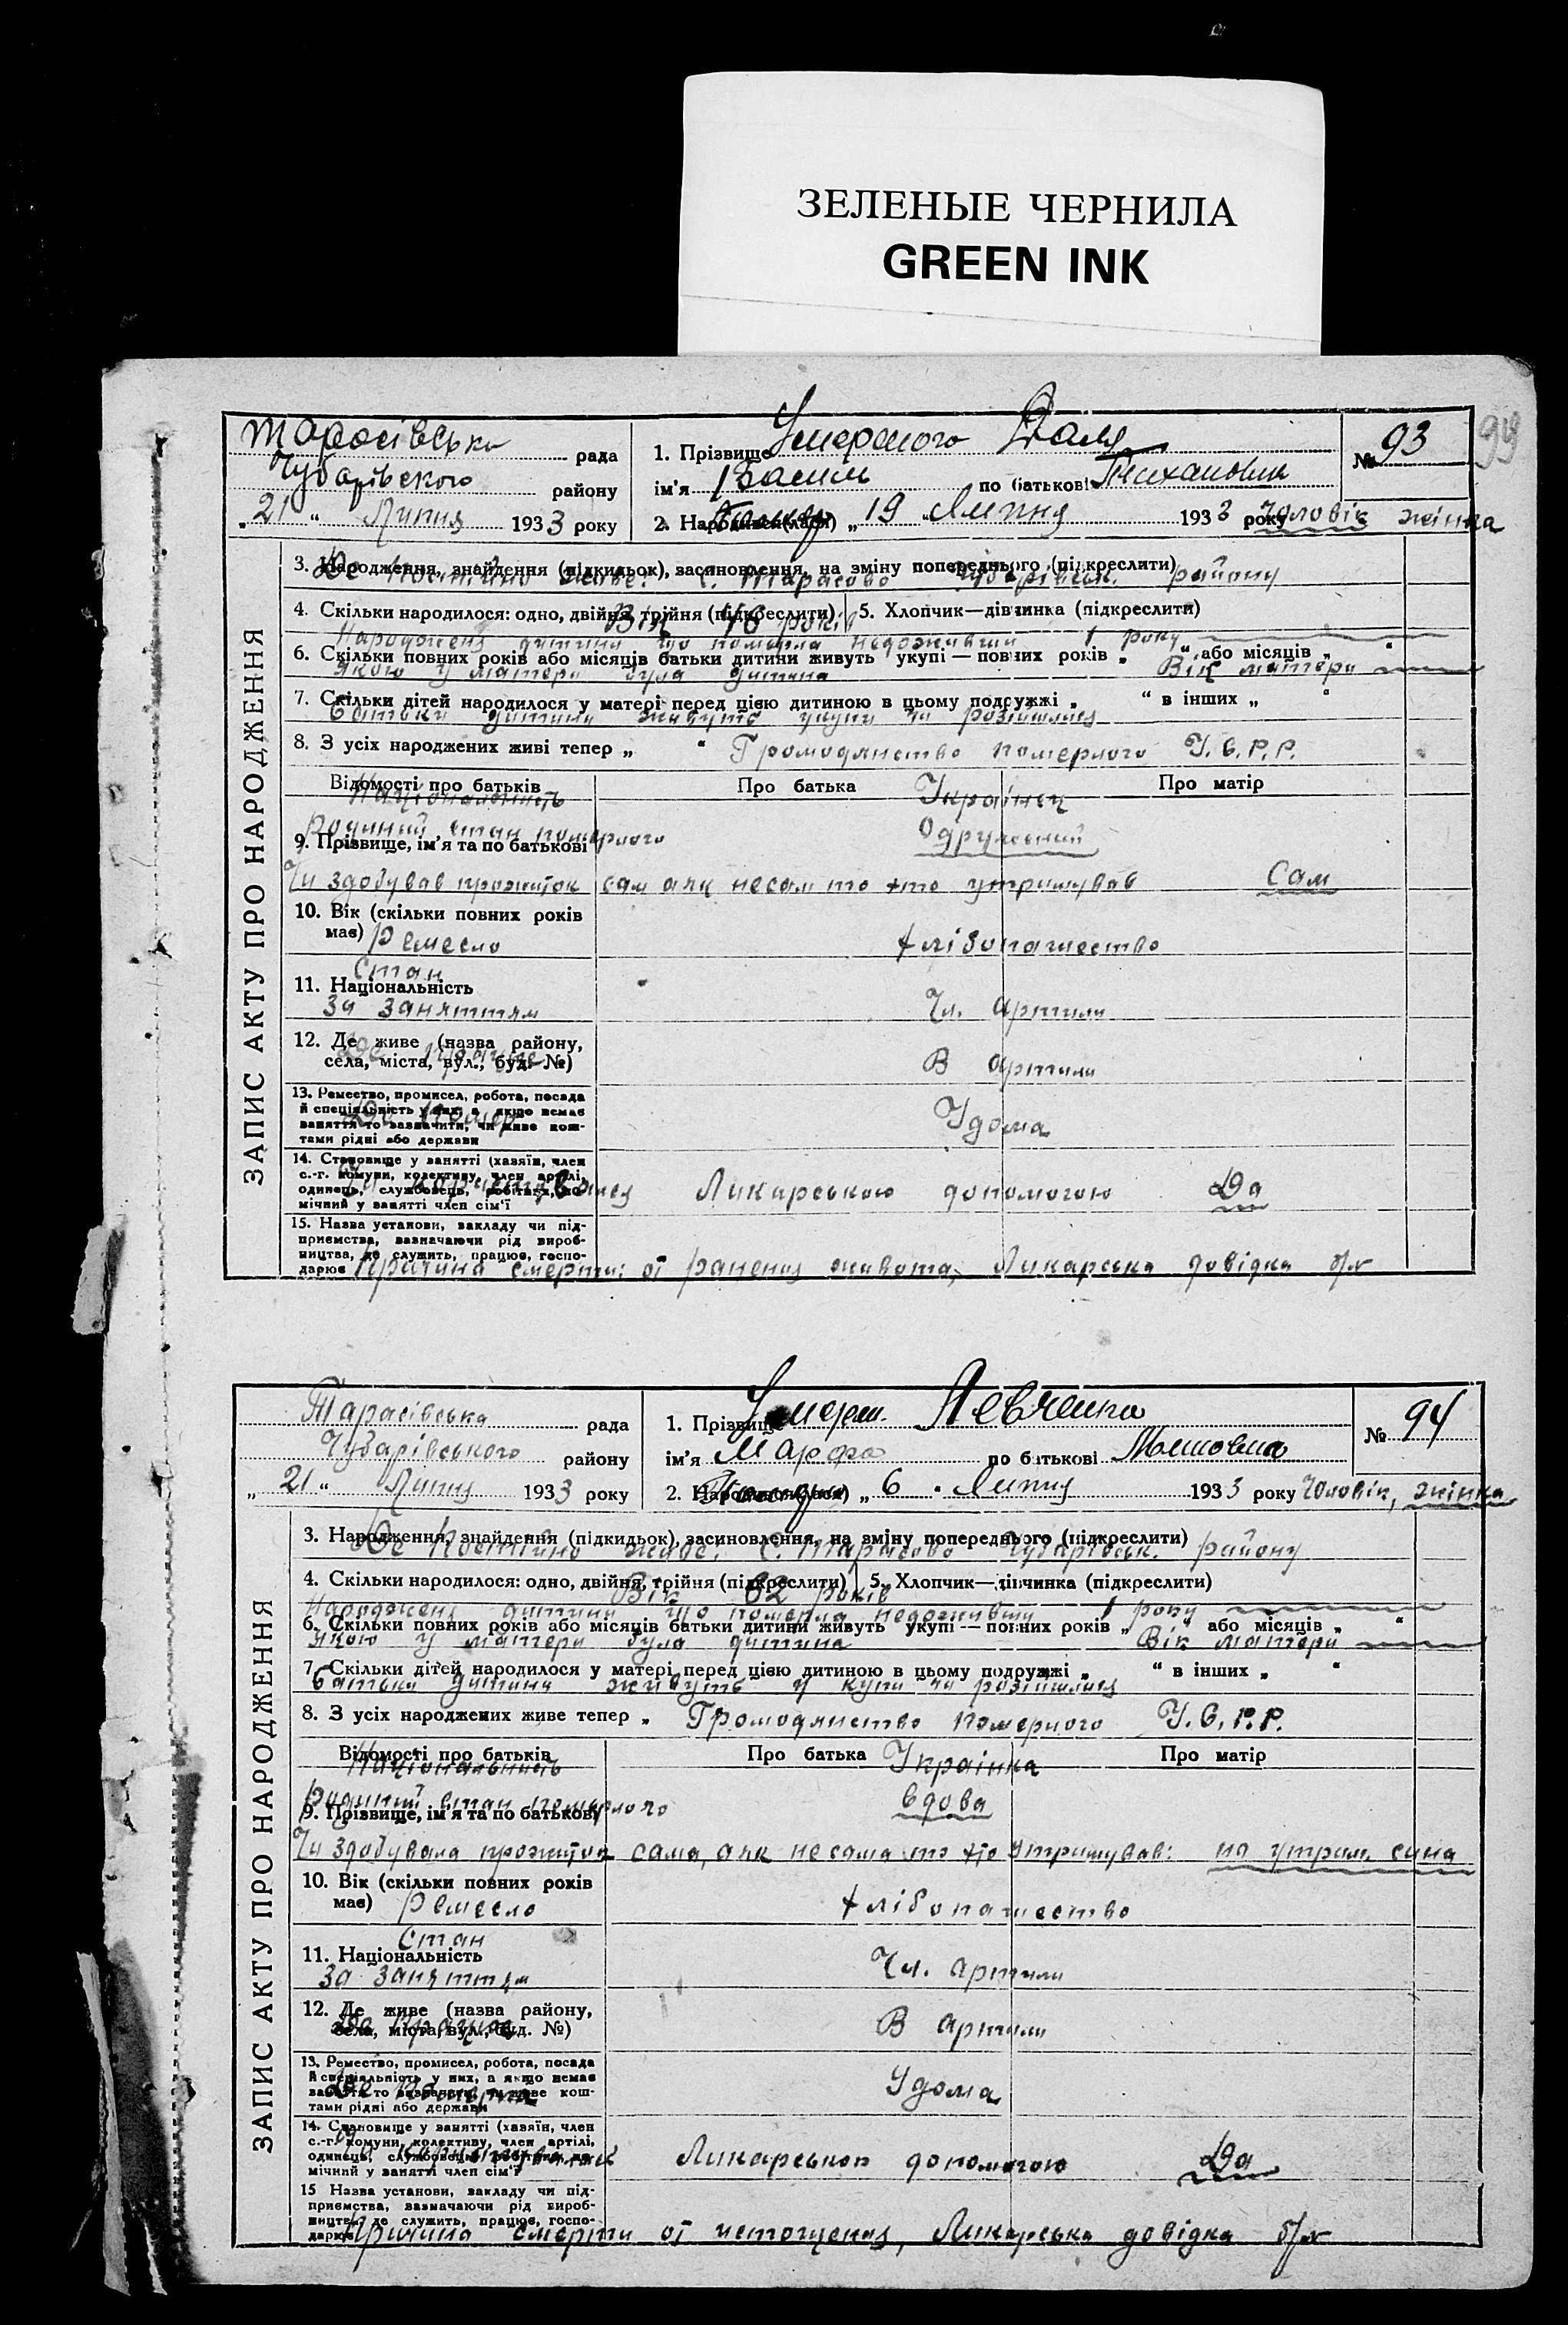 ЗЕЛЕНЫЕ ЧЕРНИЛА
GREEN INK
99
ЗАПИС АКТУ ПРО НАРОДЖЕННЯ
Тарасівська рада
Чубарівского району
„21“ Липня 1933 року
1. Прізвище Умершого
ім'я Василь по батькові
№ 93
2. Народився(лася) „19“ Липня 1933 року Чоловік жінка
3. Народження, знайдення (підкидьок), засиновлення, на зміну попереднього (підкреслити)
Де постійно живе: С. Тарасово Чубарівськ. району
4. Скільки народилося: одно, двійня, трійня (підкреслити) 5. Хлопчик—дівчинка (підкреслити)
Вік 46 років
Народженя дитини що померла недоживши 1 року
6. Скільки повних років або місяців батьки дитини живуть укупі — повних років „ “ або місяців „ “
якою у матери була дитина Вік матери
7. Скільки дітей народилося у матері перед цією дитиною в цьому подружжі „ “ в інших „ “
батьки дитини живуть укупи чи розійшлися
8. З усіх народжених живі тепер „ “ Громодянство померлого У.С.Р.Р.
Відомості про батьків Про батька Про матір
Національність Українец
родиний стан померлого Одружений
9. Прізвище, ім'я та по батькові
Чи здобував прожиток сам аяк несам то хто утримував Сам
10. Вік (скільки повних років має)
Ремесло хлібопашество
Стан
11. Національність
За заняттям Чл. артили
12. Де живе (назва району, села, міста, вул., буд. №)
Де працює В артили
13. Ремество, промисел, робота, посада
й спеціяльність у них, а якщо немає
заняття то зазначити, чи живе кош-
тами рідні або держави
Де помер Удома
14. Становище у занятті (хазяїн, член
с.-г. комуни, колективу, член артілі,
одинець, службовець, робітник, по-
мічний у занятті член сім'ї
Чи користувався Ликарською допомогою Да
15. Назва установи, закладу чи під-
приємства, зазначаючи рід вироб-
ництва, де служить, працює, госпо-
дарює
Причина смерти: от ранения живота, Ликарська довідка б/н
ЗАПИС АКТУ ПРО НАРОДЖЕННЯ
Тарасівська рада
Чубарівського району
„21“ Липня 1933 року
1. Прізвище Умерш. Левченко
ім'я Марфа по батькові
№ 94
2. Народився(лася) „6“ Липня 1933 року Чоловік, жінка
3. Народження, знайдення (підкидьок), засиновлення, на зміну попереднього (підкреслити)
Де постійно живе: С. Тарасово Чубарівськ. району
4. Скільки народилося: одно, двійня, трійня (підкреслити) 5. Хлопчик—дівчинка (підкреслити)
Вік 62 років
Народженя дитини що померла недоживши 1 року
6. Скільки повних років або місяців батьки дитини живуть укупі — повних років „ “ або місяців „ “
якою у матери була дитина Вік матери
7. Скільки дітей народилося у матері перед цією дитиною в цьому подружжі „ “ в інших „ “
батьки дитини живуть у купи чи розійшлися
8. З усіх народжених живе тепер „ Громодянство померлого У.С.Р.Р.
Відомості про батьків Про батька Про матір
Національность Українка
родиний стан померлого вдова
9. Прізвище, ім'я та по батькові
Чи здобувала прожиток сама, аяк несама то хто утримував: на утрим. сина
10. Вік (скільки повних років має)
Ремесло хлібопашество
Стан
11. Національність
За заняттям Чл. артили
12. Де живе (назва району, села, міста, вул., буд. №)
Де працює В артили
13. Ремество, промисел, робота, посада
й спеціяльність у них, а якщо немає
заняття то зазначити, чи живе кош-
тами рідні або держави
Де померла Удома
14. Становище у занятті (хазяїн, член
с.-г. комуни, колективу, член артілі,
одинець, службовець, робітник, по-
мічний у занятті член сім'ї
Ликарською допомогою Да
15 Назва установи, закладу чи під-
приємства, зазначаючи рід вироб-
ництва, де служить, працює, госпо-
дарює
Причина смерти от истощения, Ликарська довідка б/н